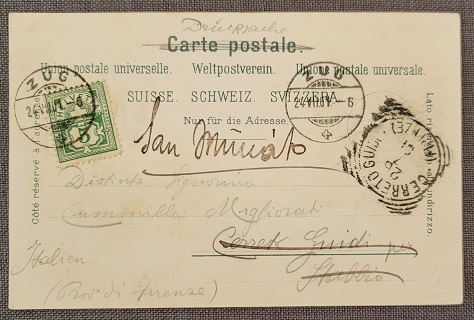 Drucksache
Carte postale.
Union postale universelle. Weltpostverein. Unione postale universale.
SUISSE. SCHWEIZ. SVIZZERA.
Nur für die Adresse.
Côté réservé à l'adresse.
Lato riservato all'indirizzo.
ZUG
24.VII.01.-6
ZUG
24.VII.01.-6
5
CERRETO GUIDI (FIRENZE)
San Miniato
Distinta Signorina
Cammilla Migliorati
Cerreto Guidi per
Stabbia
Italien
(Prov. di Firenze)